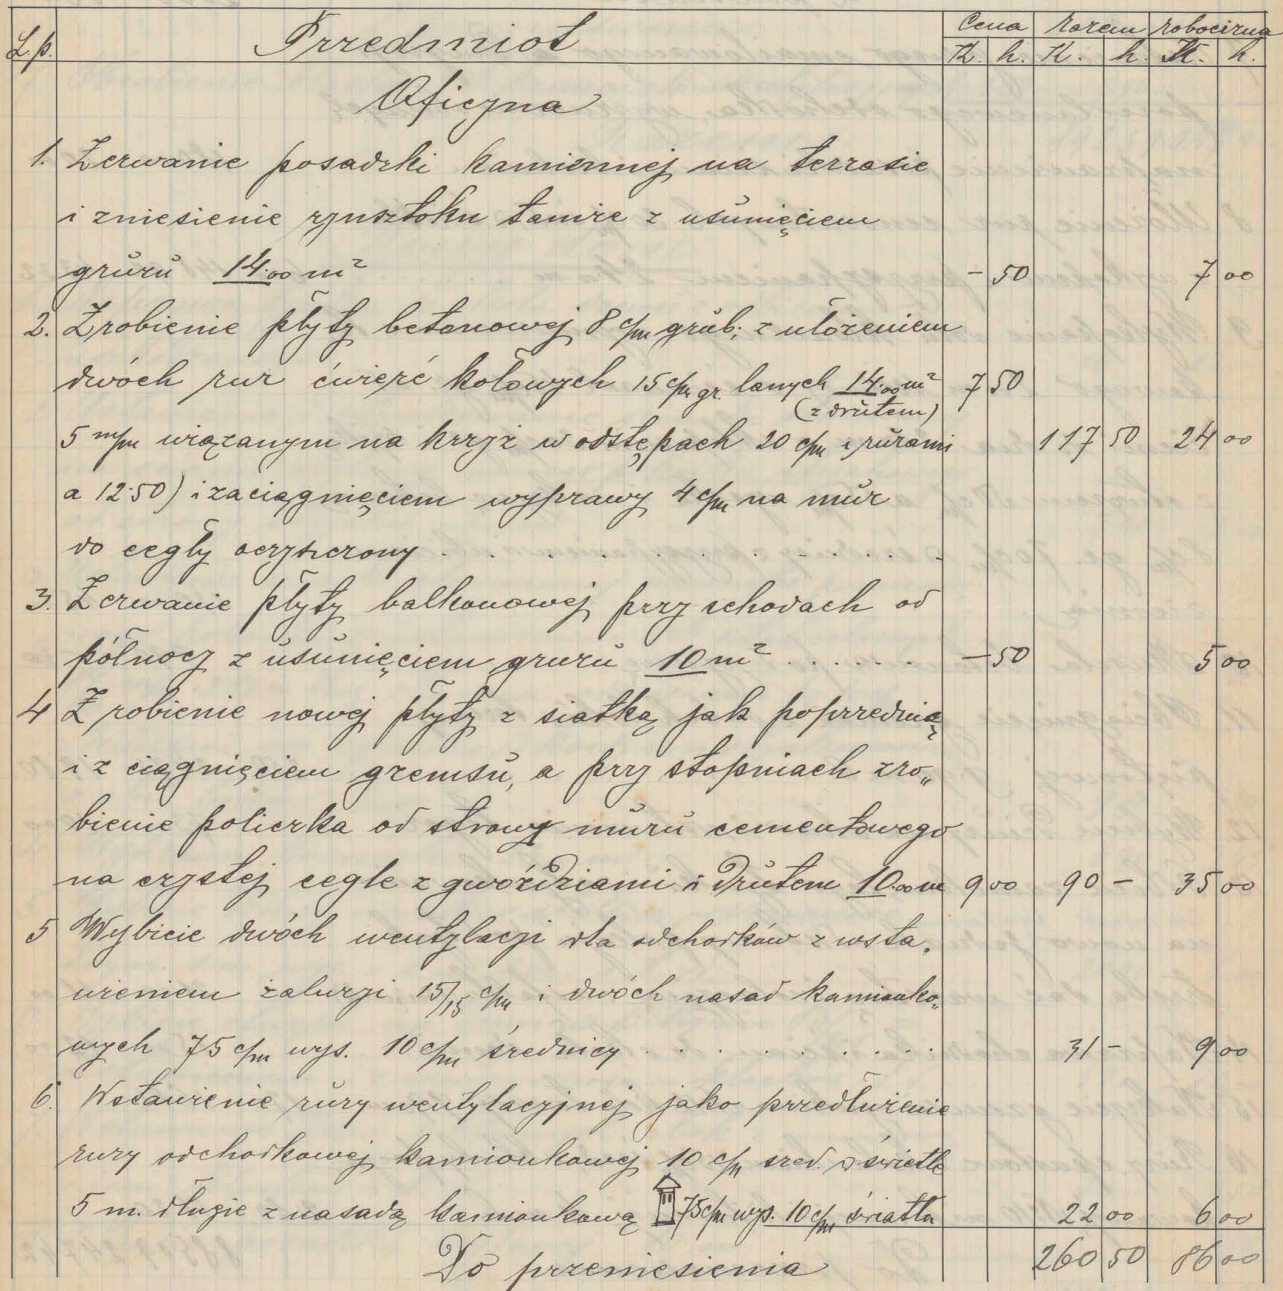 L.p. Przedmiot Cena razem robocizna
K. h. K. h. K. h.
Oficyna
1. Zerwanie posadzki kamiennej na terrasie
i zniesienie rynsztoku tamże z usunięciem
gruzu 14.00 m² - 50 7 00
2. Zrobienie płyty betonowej 8 c/m grub; z ułożeniem
dwóch rur ćwierć kołowych 15 c/m gr. lanych 14.00 m² 7 50
(z drutem)
5 m/m wiązanym na krzyż w odstępach 20 c/m z rurami 117 50 24 00
a 12·50) i zaciągnięciem wyprawy 4 c/m na mur
do cegły oczyszczony . . . . . . . . . .
3. Zerwanie płyty balkonowej przy schodach od
północy z usunięciem gruzu 10 m² . . . . . . - 50 5 00
4 Zrobienie nowej płyty z siatką jak poprzednią
i z ciągnięciem gzemsu, a przy stopniach zro„
bienie policzka od strony muru cementowego
na czystej cegle z gwoździami i drutem 10.00 m 9 00 90 - 35 00
5 Wybicie dwóch wentylacji dla odchodków z wsta„
wieniem żaluzji 15/15 c/m i dwóch nasad kamionko„
wych 75 c/m wys. 10 c/m średnicy . . . . . . . . . 31 - 9 00
6. Wstawienie rury wentylacyjnej jako przedłużenie
rury odchodkowej kamionkowej 10 c/m śred. w świetle
5 m. długie z nasadą kamionkową 75 c/m wys. 10 c/m światła 22 00 6 00
Do przeniesienia 260 50 86 00